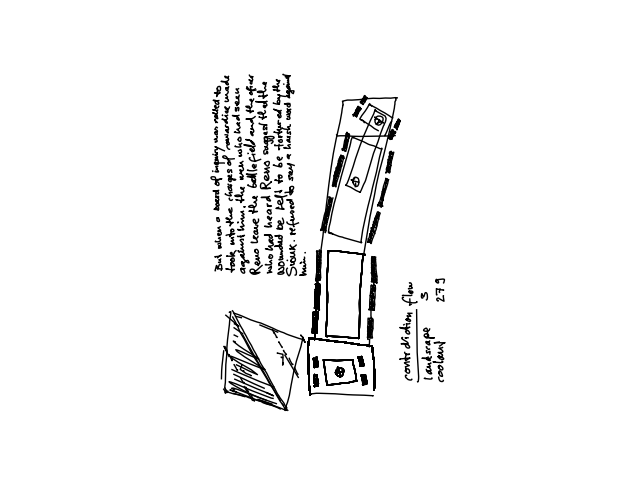 But when a board of inquiry was called to
look into the charges of cowardice made
against him, the men who had seen
Reno leave the battlefield and the officer
who had heard Reno suggest that the
wounded be left to be tortured by the
Sioux, refused to say a harsh word against
him.
contradiction flow
landscape S
coolant 279